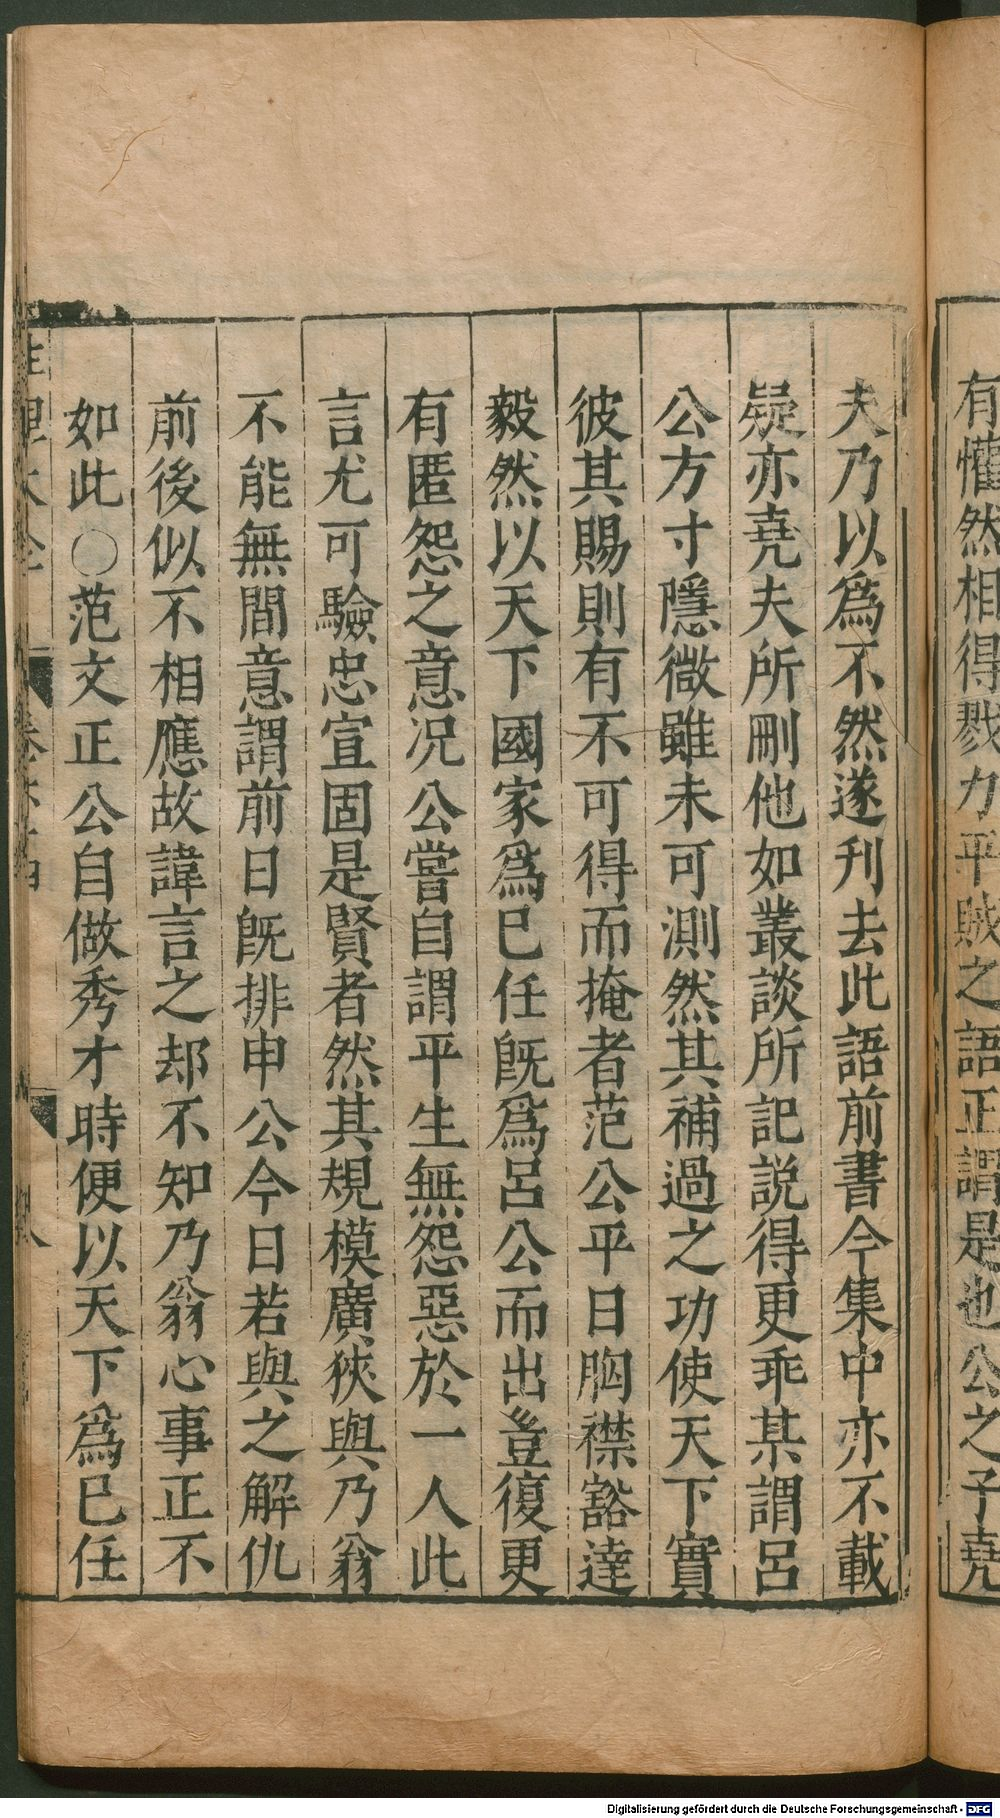 有懽然相得戮力平賊之語正謂是也公之子堯
夫乃以爲不然遂刊去此語前書今集中亦不載
疑亦堯夫所刪他如叢談所記説得更乖某謂呂
公方寸隱微雖未可測然其補過之功使天下實
彼其賜則有不可得而掩者范公平日胸襟豁達
毅然以天下國家爲已任旣爲呂公而出豈復更
有匿怨之意况公嘗自謂平生無怨惡於一人此
言尤可驗忠宣固是賢者然其規模廣狹與乃翁
不能無間意謂前日旣排申公今日若與之解仇
前後似不相應故諱言之却不知乃翁心事正不
如此○范文正公自做秀才時便以天下爲已任
Digitalisierung gefördert durch die Deutsche Forschungsgemeinschaft - DFG